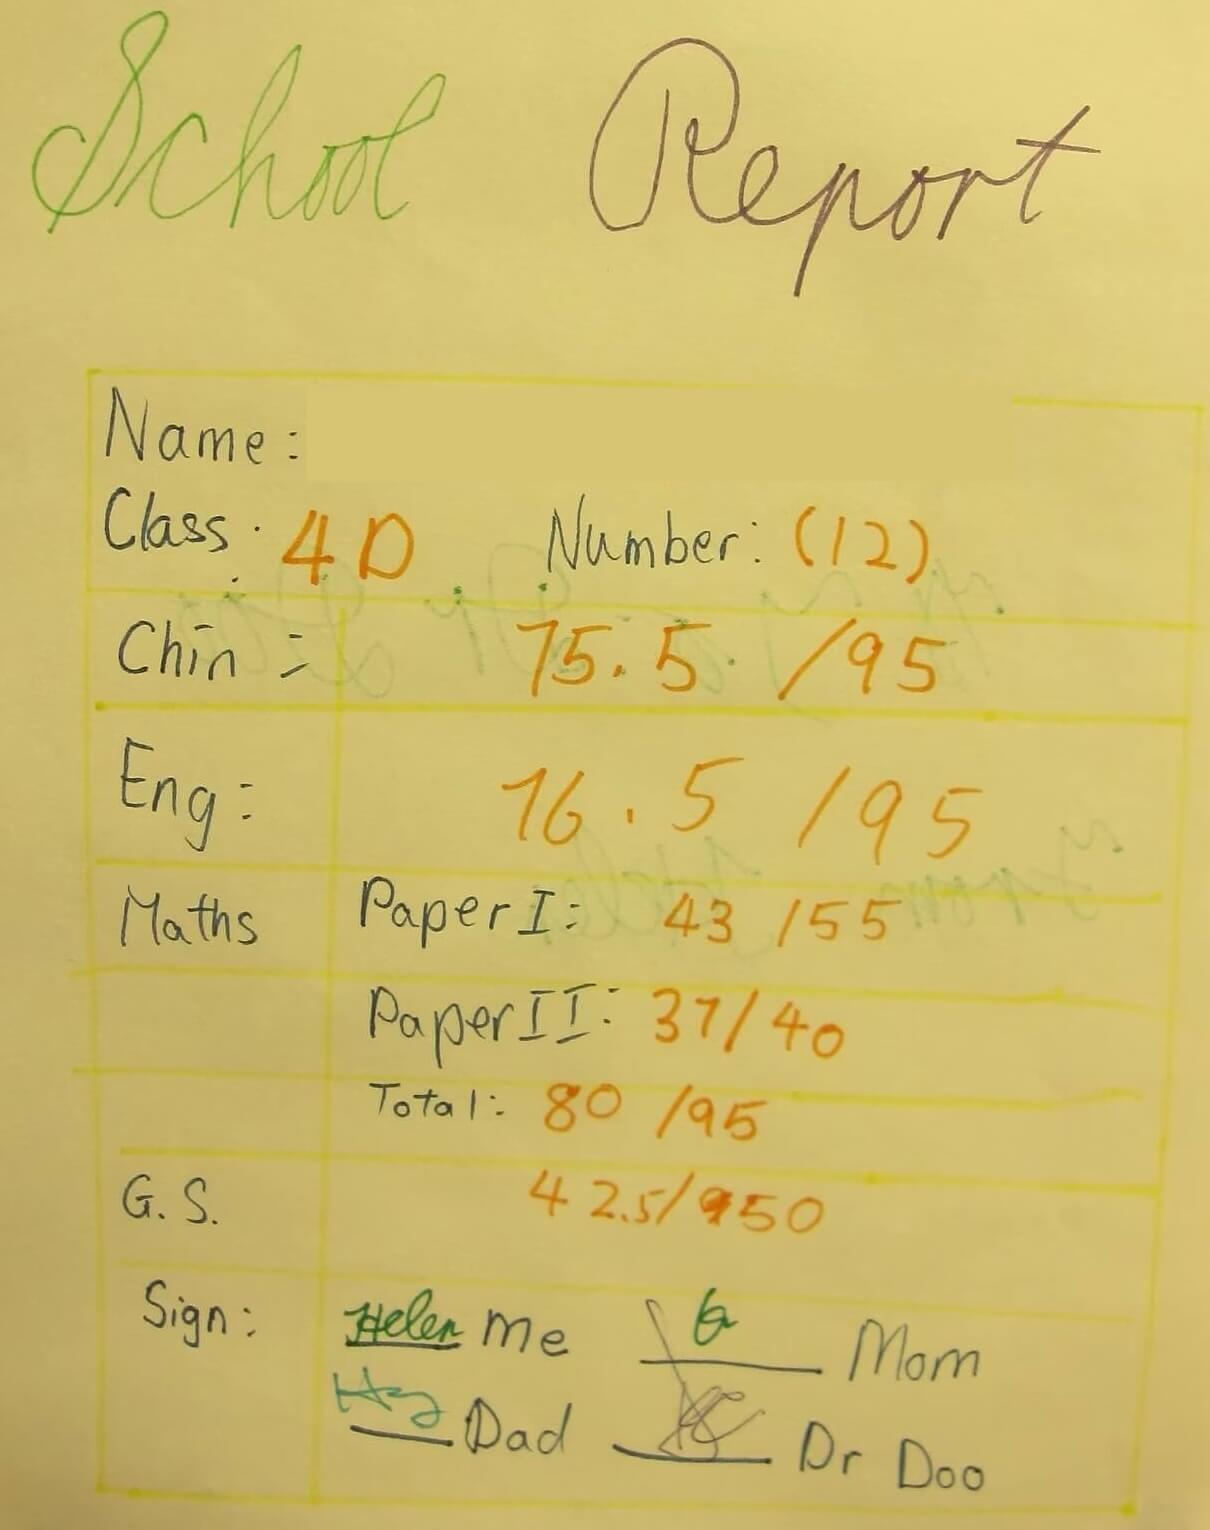 School Report
Name:
Class: 4D Number: (12)
Chin: 75.5 /95
Eng: 76.5 /95
Maths Paper I: 43 /55
Paper II: 37/40
Total: 80 /95
G.S. 42.5/50
Sign: Helen Me Mom
Dad Dr Doo